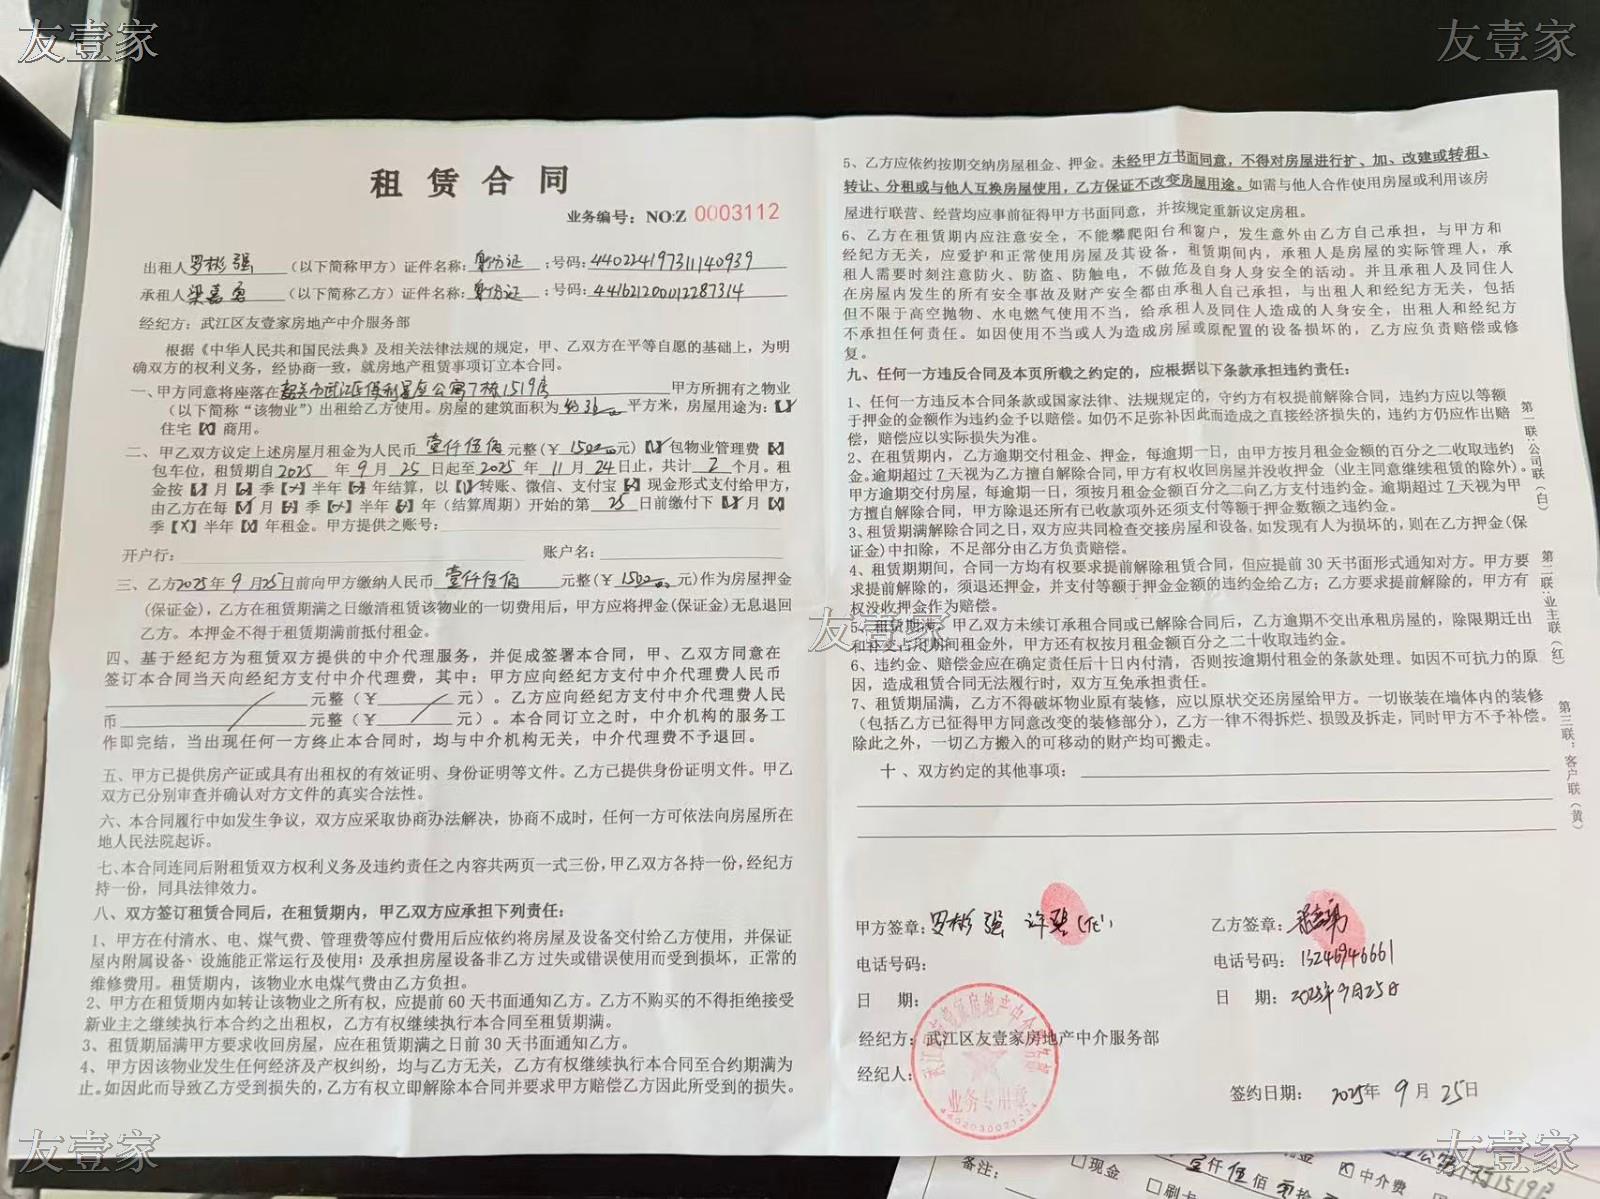 友壹家
友壹家
租赁合同
业务编号：NO:Z 0003112
出租人罗彬强（以下简称甲方）证件名称：身份证：号码：440224197311140939
承租人梁嘉勇（以下简称乙方）证件名称：身份证：号码：441621200012287314
经纪方：武江区友壹家房地产中介服务部
根据《中华人民共和国民法典》及相关法律法规的规定，甲、乙双方在平等自愿的基础上，为明
确双方的权利义务，经协商一致，就房地产租赁事项订立本合同。
一、甲方同意将座落在韶关市武江区保利星座公寓7栋1519房 甲方所拥有之物业
（以下简称“该物业”）出租给乙方使用。房屋的建筑面积为 平方米，房屋用途为：【√】
住宅【X】商用。
二、甲乙双方议定上述房屋月租金为人民币 壹仟伍佰 元整(￥ 1500 元)【√】包物业管理费【X】
包车位，租赁期自2025年9月25日起至2025年11月24日止，共计2个月。租
金按【√】月【X】季【X】半年【X】年结算，以【√】转账、微信、支付宝【X】现金形式支付给甲方，
由乙方在每【√】月【X】季【X】半年【X】年（结算周期）开始的第 25 日前缴付下【√】月【X】
季【X】半年【X】年租金。甲方提供之账号：
开户行： 账户名：
三、乙方2025年9月25日前向甲方缴纳人民币 壹仟伍佰 元整(￥ 1500 元)作为房屋押金
(保证金)，乙方在租赁期满之日缴清租赁该物业的一切费用后，甲方应将押金(保证金)无息退回
乙方。本押金不得于租赁期满前抵付租金。
四、基于经纪方为租赁双方提供的中介代理服务，并促成签署本合同，甲、乙双方同意在
签订本合同当天向经纪方支付中介代理费，其中：甲方应向经纪方支付中介代理费人民币
元整（￥ 元）。乙方应向经纪方支付中介代理费人民
币 元整（￥ 元）。本合同订立之时，中介机构的服务工
作即完结，当出现任何一方终止本合同时，均与中介机构无关，中介代理费不予退回。
五、甲方已提供房产证或具有出租权的有效证明、身份证明等文件。乙方已提供身份证明文件。甲乙
双方已分别审查并确认对方文件的真实合法性。
六、本合同履行中如发生争议，双方应采取协商办法解决，协商不成时，任何一方可依法向房屋所在
地人民法院起诉。
七、本合同连同后附租赁双方权利义务及违约责任之内容共两页一式三份，甲乙双方各持一份，经纪方
持一份，同具法律效力。
八、双方签订租赁合同后，在租赁期内，甲乙双方应承担下列责任：
1、甲方在付清水、电、煤气费、管理费等应付费用后应依约将房屋及设备交付给乙方使用，并保证
屋内附属设备、设施能正常运行及使用；及承担房屋设备非乙方过失或错误使用而受到损坏，正常的
维修费用。租赁期内，该物业水电煤气费由乙方负担。
2、甲方在租赁期内如转让该物业之所有权，应提前60天书面通知乙方。乙方不购买的不得拒绝接受
新业主之继续执行本合约之出租权，乙方有权继续执行本合同至租赁期满。
3、租赁期届满甲方要求收回房屋，应在租赁期满之日前30天书面通知乙方。
4、甲方因该物业发生任何经济及产权纠纷，均与乙方无关，乙方有权继续执行本合同至合约期满为
止。如因此而导致乙方受到损失的，乙方有权立即解除本合同并要求甲方赔偿乙方因此所受到的损失。
5、乙方应依约按期交纳房屋租金、押金。未经甲方书面同意，不得对房屋进行扩、加、改建或转租、
转让、分租或与他人互换房屋使用，乙方保证不改变房屋用途。如需与他人合作使用房屋或利用该房
屋进行联营、经营均应事前征得甲方书面同意，并按规定重新议定房租。
6、乙方在租赁期内应注意安全，不能攀爬阳台和窗户，发生意外由乙方自己承担，与甲方和
经纪方无关，应爱护和正常使用房屋及其设备，租赁期间内，承租人是房屋的实际管理人，承
租人需要时刻注意防火、防盗、防触电，不做危及自身人身安全的活动。并且承租人及同住人
在房屋内发生的所有安全事故及财产安全都由承租人自己承担，与出租人和经纪方无关，包括
但不限于高空抛物、水电燃气使用不当，给承租人及同住人造成的人身安全，出租人和经纪方
不承担任何责任。如因使用不当或人为造成房屋或原配置的设备损坏的，乙方应负责赔偿或修
复。
九、任何一方违反合同及本页所载之约定的，应根据以下条款承担违约责任：
1、任何一方违反本合同条款或国家法律、法规规定的，守约方有权提前解除合同，违约方应以等额
于押金的金额作为违约金予以赔偿。如仍不足弥补因此而造成之直接经济损失的，违约方仍应作出赔
偿，赔偿应以实际损失为准。
2、在租赁期内，乙方逾期交付租金、押金，每逾期一日，由甲方按月租金金额的百分之二收取违约
金。逾期超过7天视为乙方擅自解除合同，甲方有权收回房屋并没收押金（业主同意继续租赁的除外）。
甲方逾期交付房屋，每逾期一日，须按月租金金额百分之二向乙方支付违约金。逾期超过7天视为甲
方擅自解除合同，甲方除退还所有已收款项外还须支付等额于押金数额之违约金。
3、租赁期满解除合同之日，双方应共同检查交接房屋和设备，如发现有人为损坏的，则在乙方押金(保
证金)中扣除，不足部分由乙方负责赔偿。
4、租赁期期间，合同一方均有权要求提前解除租赁合同，但应提前30天书面形式通知对方。甲方要
求提前解除的，须退还押金，并支付等额于押金金额的违约金给乙方；乙方要求提前解除的，甲方有
权没收押金作为赔偿。
5、租赁期满，甲乙双方未续订承租合同或已解除合同后，乙方逾期不交出承租房屋的，除限期迁出
和补交占用期间租金外，甲方还有权按月租金额百分之二十收取违约金。
6、违约金、赔偿金应在确定责任后十日内付清，否则按逾期付租金的条款处理。如因不可抗力的原
因，造成租赁合同无法履行时，双方互免承担责任。
7、租赁期届满，乙方不得破坏物业原有装修，应以原状交还房屋给甲方。一切嵌装在墙体内的装修
（包括乙方已征得甲方同意改变的装修部分），乙方一律不得拆烂、损毁及拆走，同时甲方不予补偿。
除此之外，一切乙方搬入的可移动的财产均可搬走。
十、双方约定的其他事项：
第一联：公司联（白）
第二联：业主联（红）
第三联：客户联（黄）
友壹家
甲方签章：罗彬强 许（代） 乙方签章：
电话号码： 电话号码：13246946661
日 期： 日 期：2025年9月25日
经纪方：武江区友壹家房地产中介服务部
经纪人：
业务专用章
签约日期：2025年9月25日
友壹家
友壹家
备注：
□现金
□刷卡
壹仟伍佰
中介费